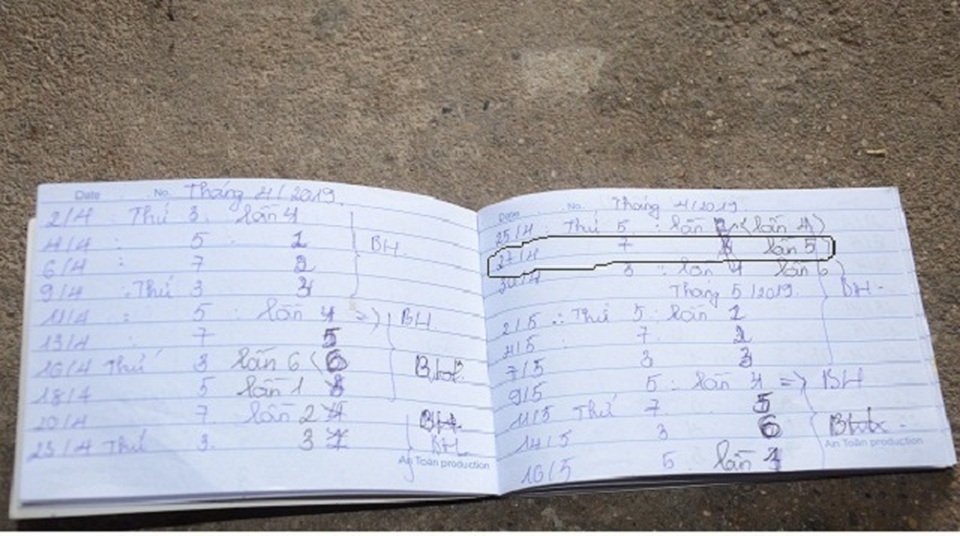 Date No. Tháng 4/2019.
2/4 Thứ 3. lần 4
4/4 : 5 : 1
6/4 : 7 2
9/4 : Thứ 3 3
BH.
11/4 : 5 : lần 4 => BH
13/4 : 7 5
16/4 Thứ 3 lần 6 (6
18/4 5 lần 1
20/4 7 lần 2
23/4 Thứ 3. 3
BH
An Toàn production
Date No. Tháng 4/2019
25/4 Thứ 5 : lần (lần 4)
27/4 7 lần 5
30/4 3 : lần 4 lần 6
BH.
Tháng 5/2019.
2/5 : Thứ 5 : lần 1
4/5 7 2
7/5 3 3
9/5 5 : lần 4 => BH
11/5 Thứ 7 5
14/5 3 6
An Toàn production
16/5 5 lần 1